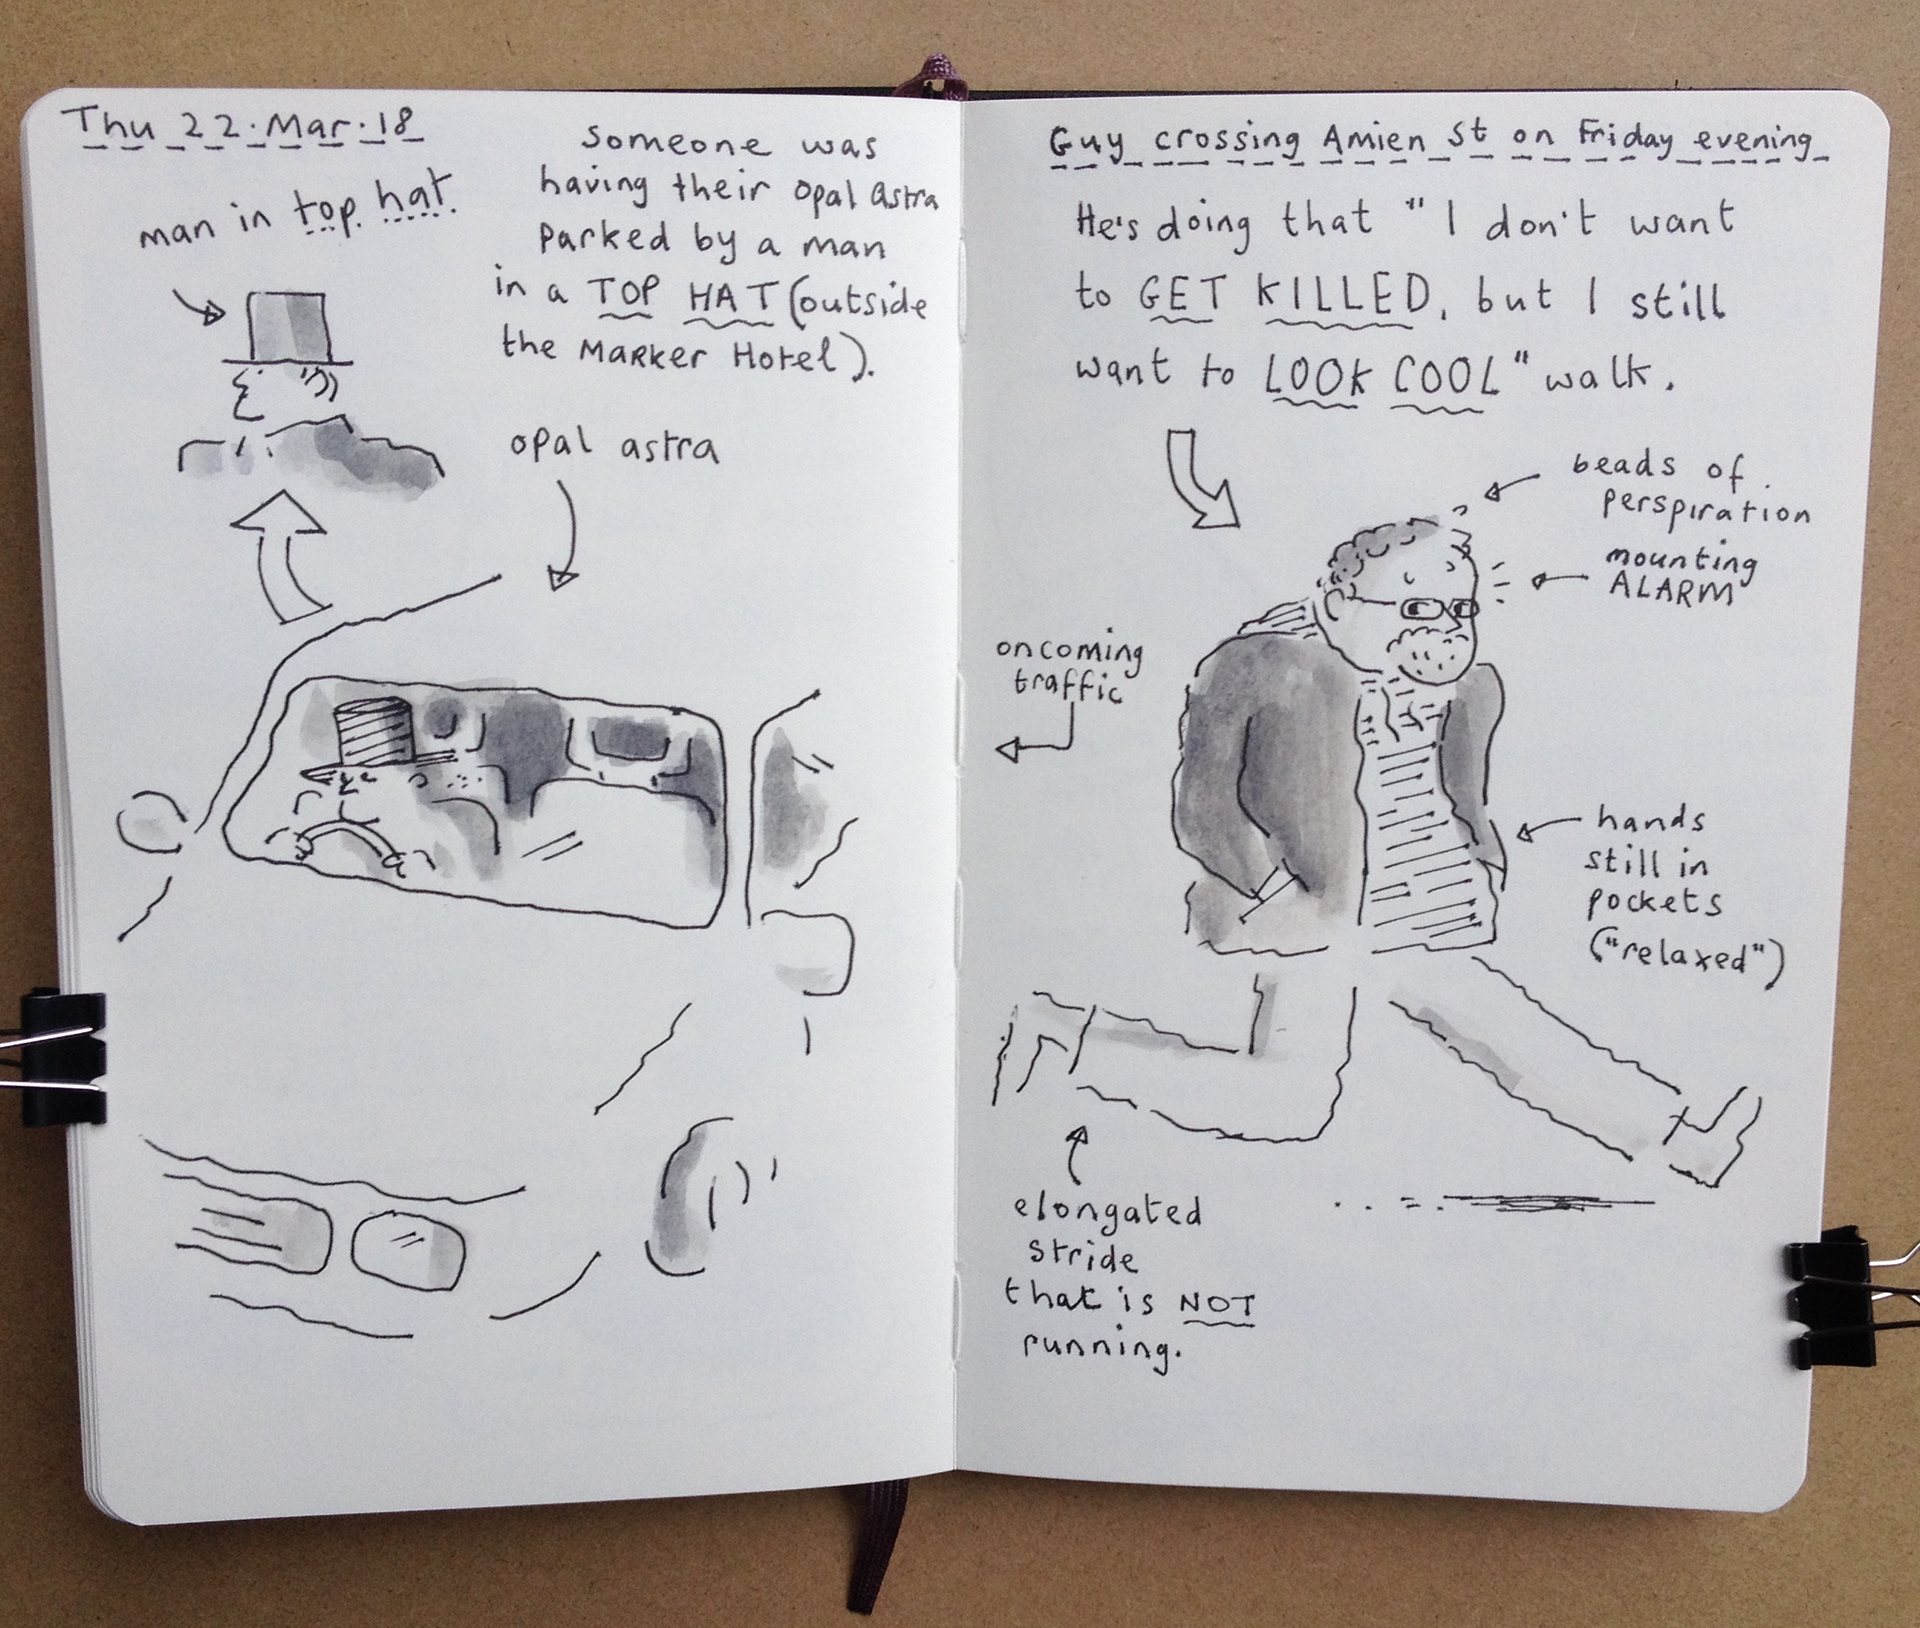 Thu 22.Mar.18
man in top hat.
someone was
having their opal astra
parked by a man
in a TOP HAT (outside
the Marker Hotel).
opal astra
Guy crossing Amien St on Friday evening
He's doing that "I don't want
to GET KILLED, but I still
want to LOOK COOL" walk.
beads of
perspiration
mounting
ALARM
oncoming
traffic
hands
still in
pockets
("relaxed")
elongated
stride
that is NOT
running.